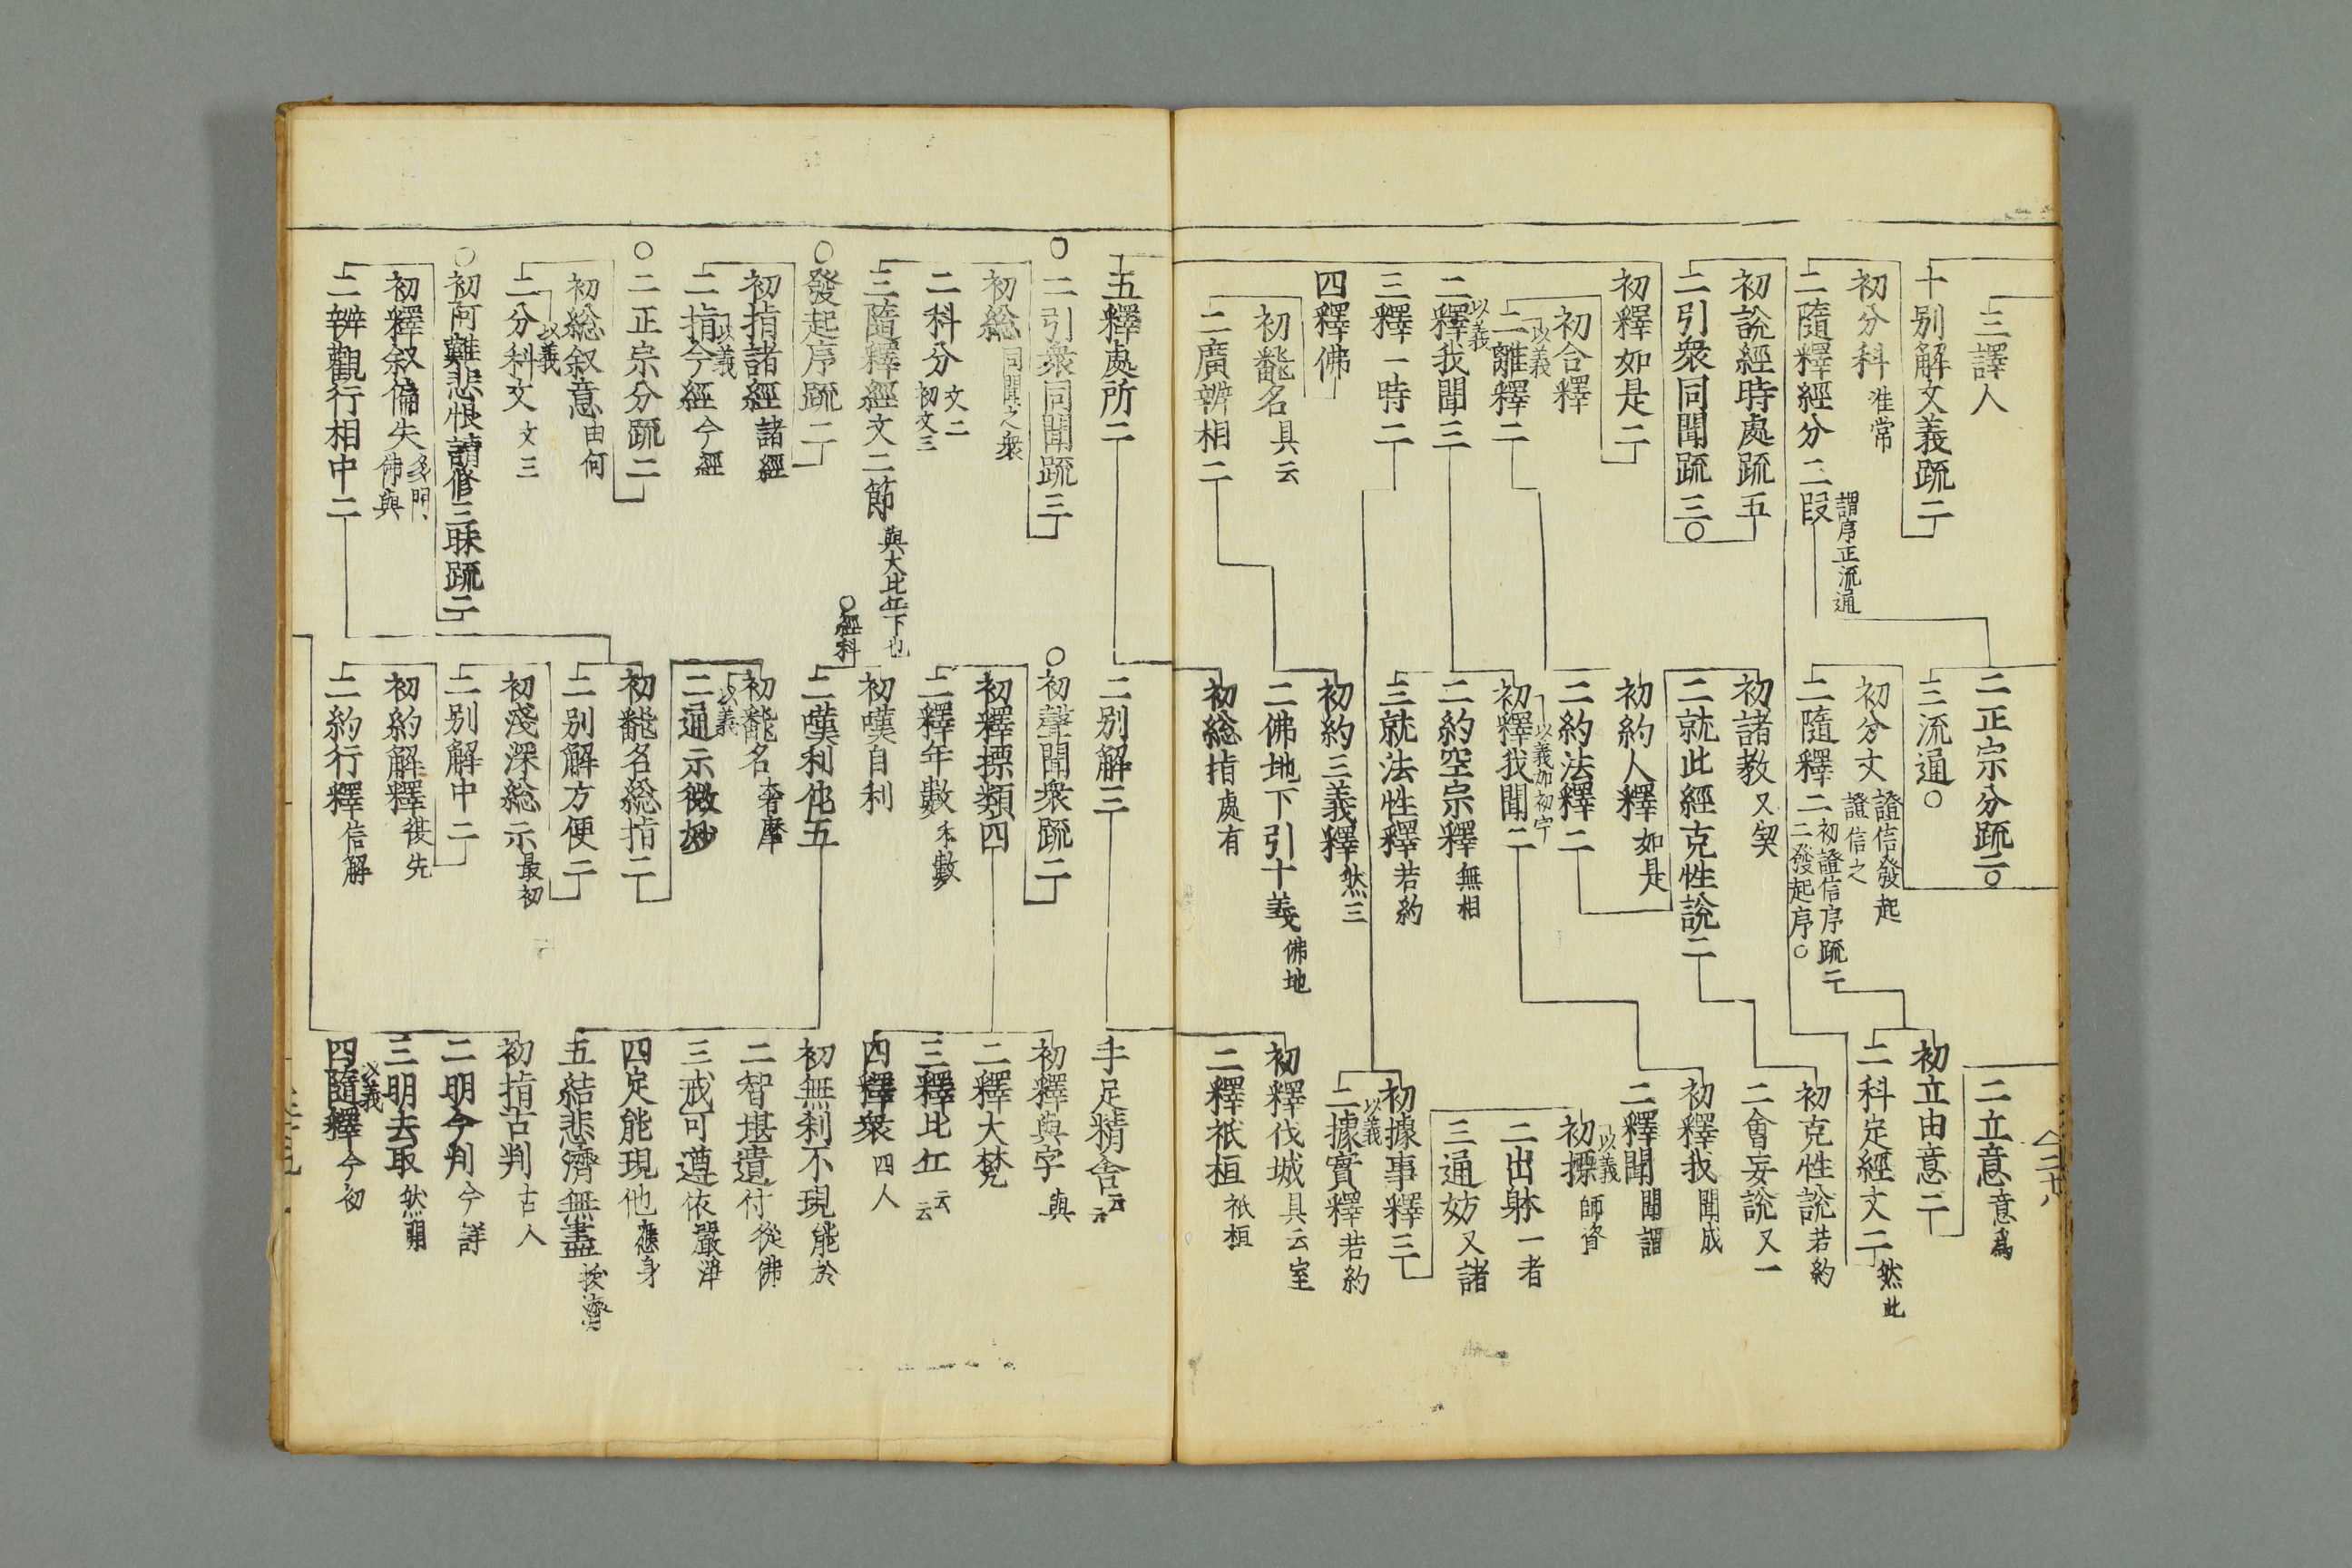 三譯人
十別解文義䟽二
初分科 准常
二隨釋經分三段 謂序正流通
初說經時處䟽五
二引衆同聞䟽三○
初釋如是二
初合釋
以義
二離釋二
以義
二釋我聞三
三釋一時二
四釋佛
初飜名 具云
二廣辨相二
二正宗分䟽二○
三流通○
初分文 證信發起 證信之
二隨釋二 初證信序䟽二 二發起序○
初諸教 又契
二就此經克性說二
初約人釋 如是
二約法釋二
以義加初字
初釋我聞二
二約空宗釋 無相
三就法性釋 若約
初約三義釋 然三
二佛地下引十義 佛地
初総指 處有
二立意 意爲
初立由意二
二科定經文二 然此
初克性說 若約
二會妄說 又一
初釋我 聞成
二釋聞 聞謂
以義
初摽 師資
二出躰 一者
三通妨 又諸
初據事釋三
以義
二據實釋 若約
初釋伐城 具云室
二釋祇桓 祇桓
五釋處所二
○二引衆同聞䟽三
初総 同聞之衆
二科分 文二 初文三
三隨釋經文二節 與大比丘下也
○經科
○發起序䟽二
初指諸經 諸經
以義
二指今經 今經
○二正宗分䟽二
初総叙意 由何
以義
二分科文 文三
○初阿難悲恨請修三昧䟽二
初釋叙偏失 多門 佛與
二辨觀行相中二
二別解三
○初聲聞衆䟽二
初釋摽類四
二釋年數 禾數
初嘆自利
二嘆利他五
初飜名 奢摩
以義
二通示微妙
初飜名総指二
二別解方便二
初淺深総示 最初
二別解中二
初約解釋 従先
二約行釋 信解
手足精舍 云云
初釋與字 與
二釋大梵
三釋比丘 云云
四釋衆 四人
初無刹不現 能於
二智堪遺付 從佛
三戒可遵依 嚴淨
四定能現他 應身
五結悲濟無盡 拔濟
初指古判 古人
二明今判 今詳
三明去取 然雖
以義
四隨釋 今初